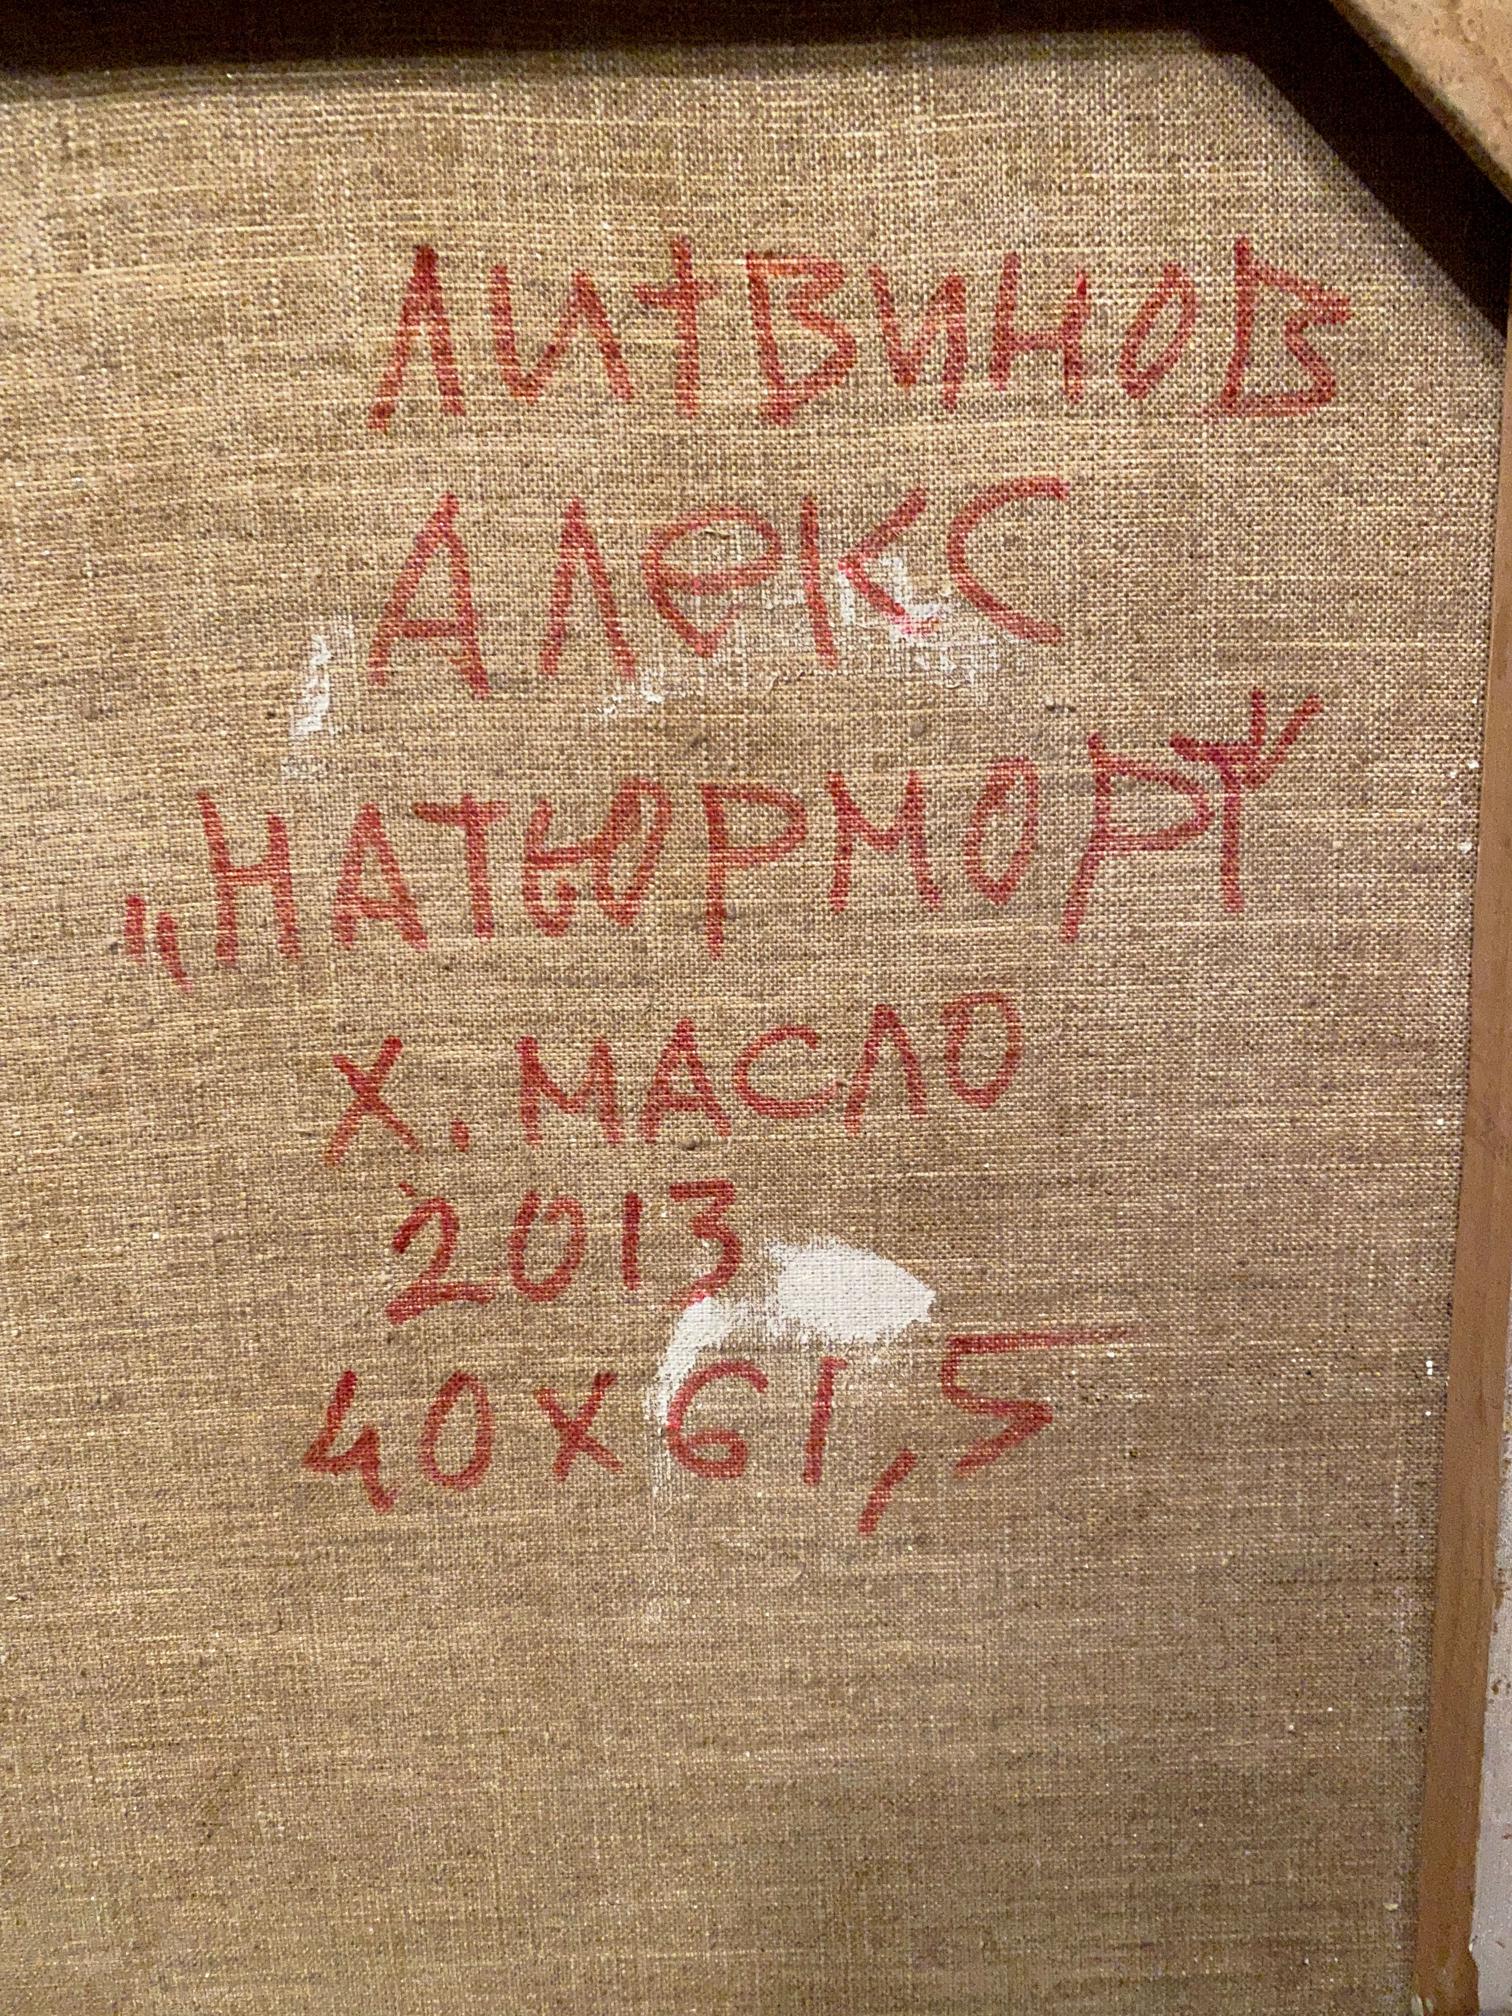 ЛИТВИНОВ
АЛЕКС
„НАТЮРМОРТ"
Х. МАСЛО
2013
40х61,5